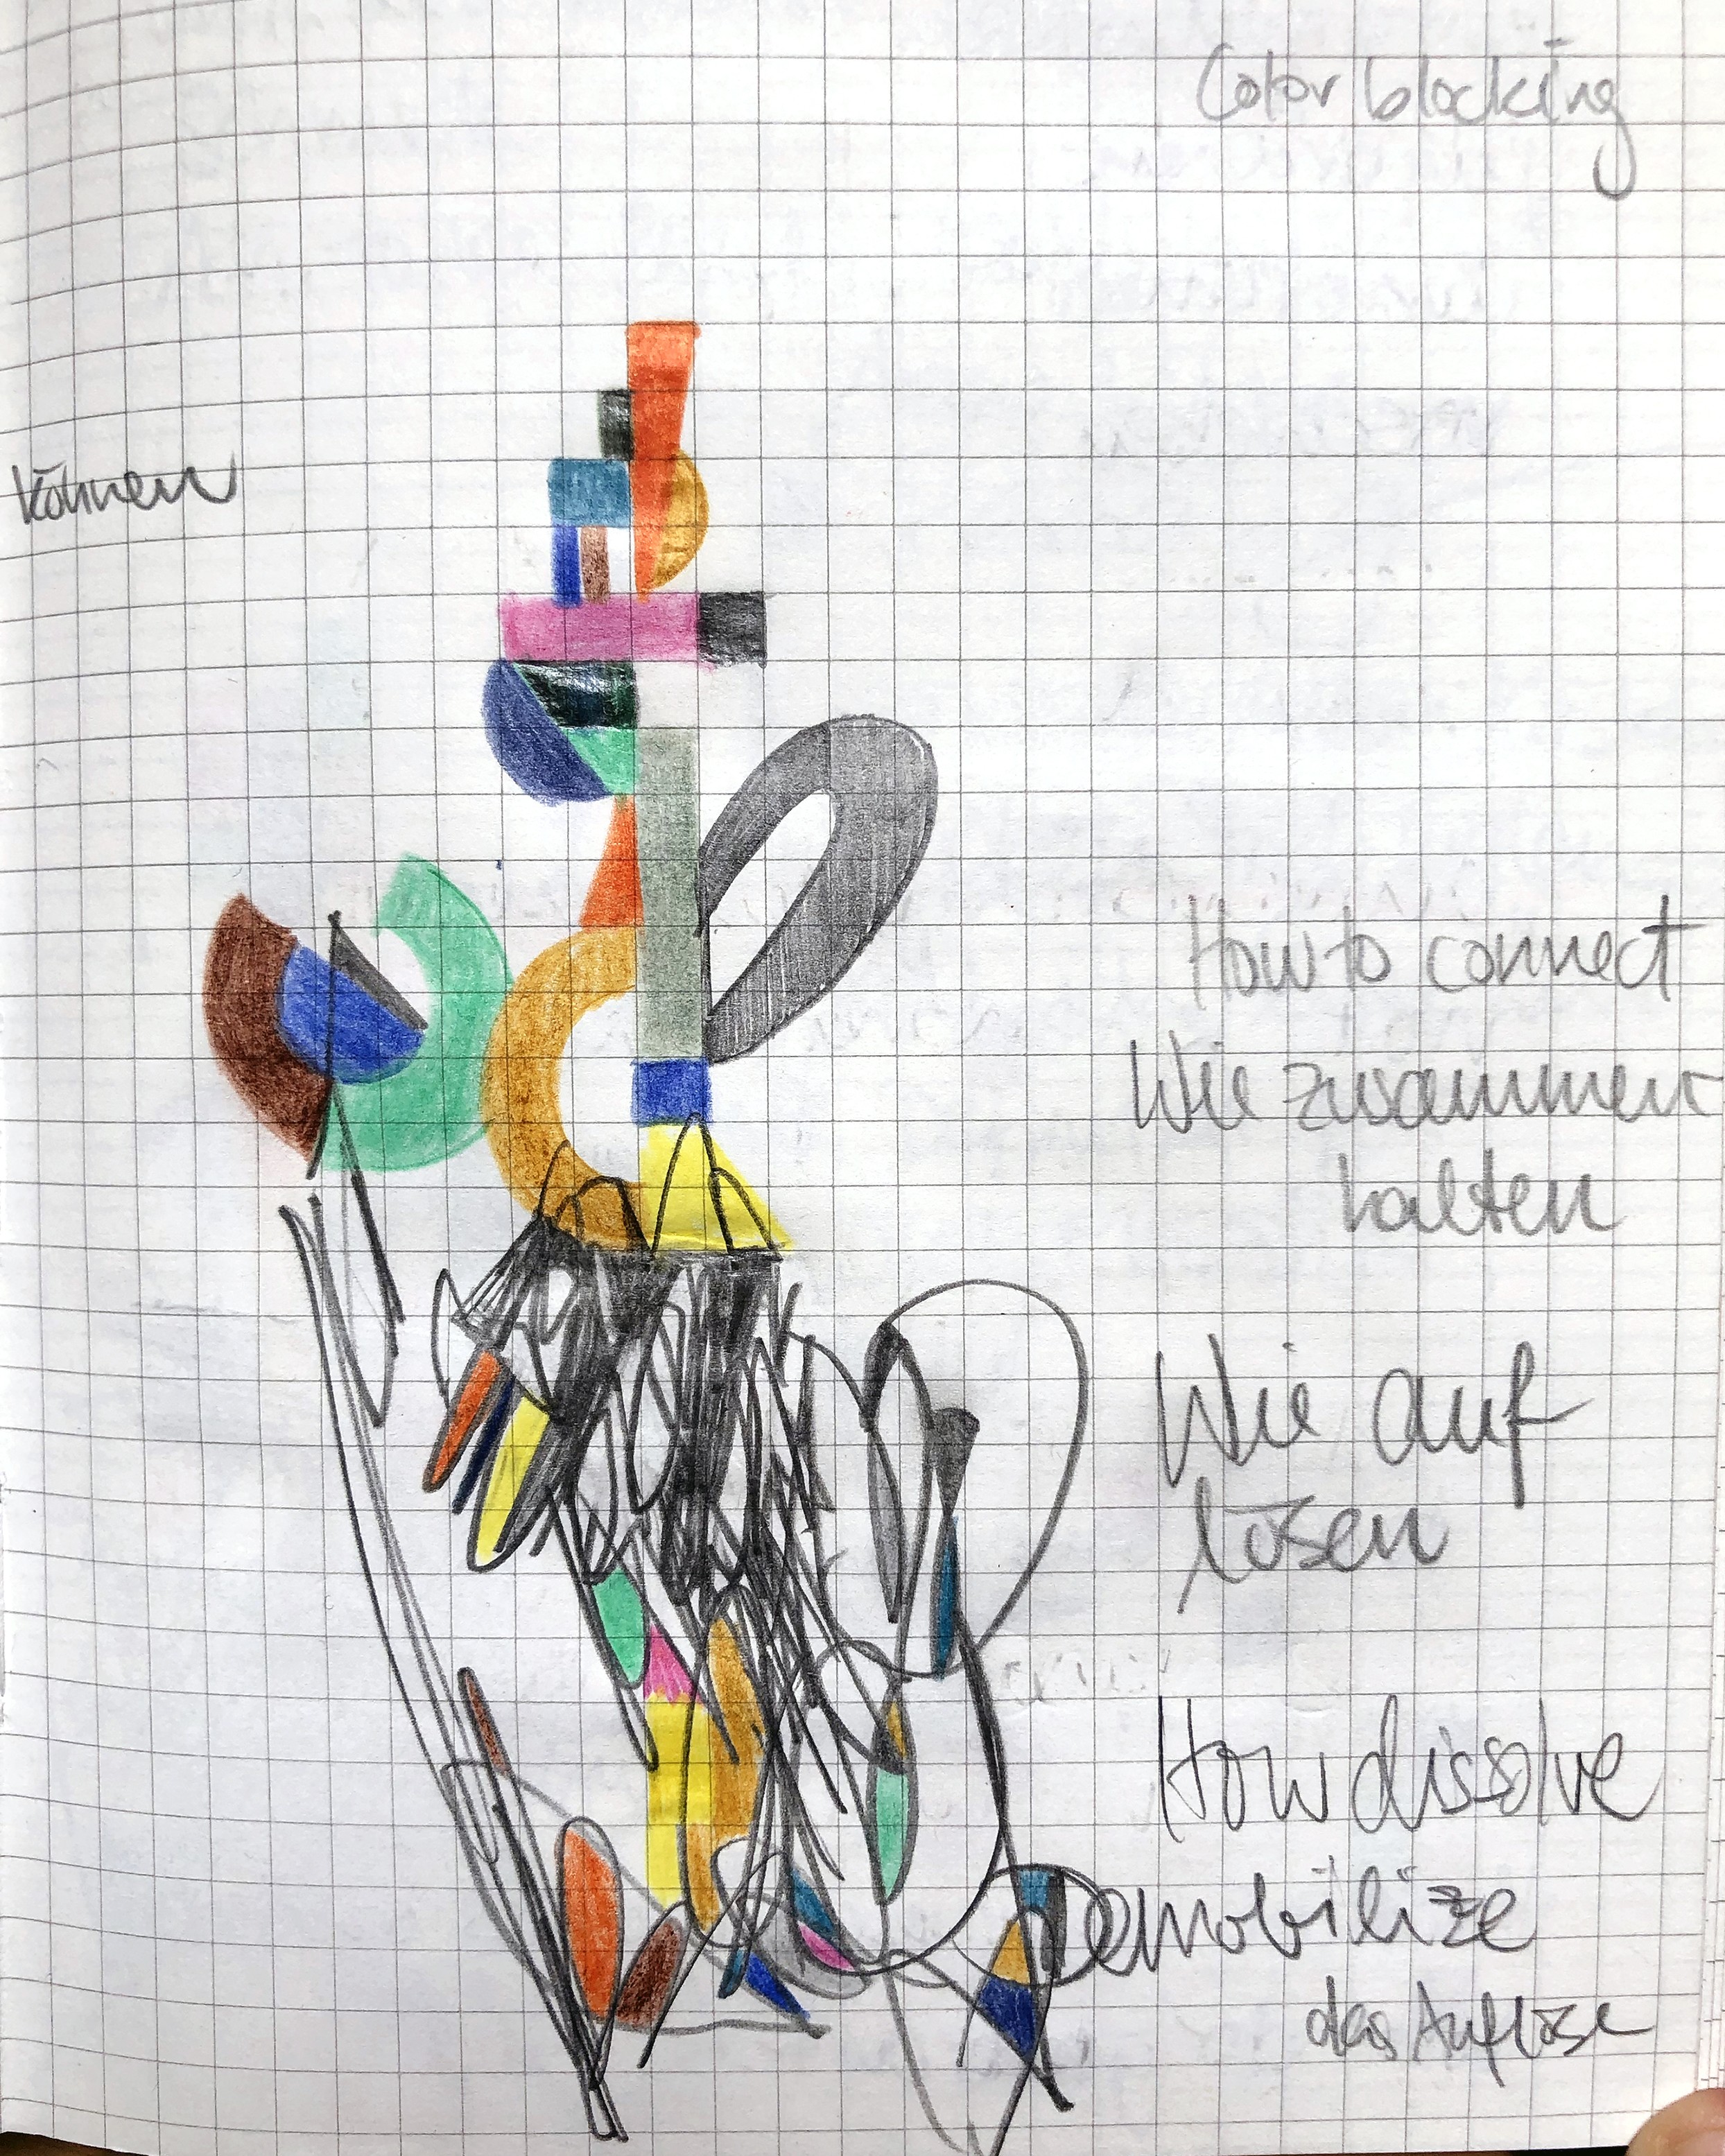 Color blocking
können
How to connect
Wie zusammen
halten
Wie auf
lösen
How dissolve
Demobilize
das Auflöse